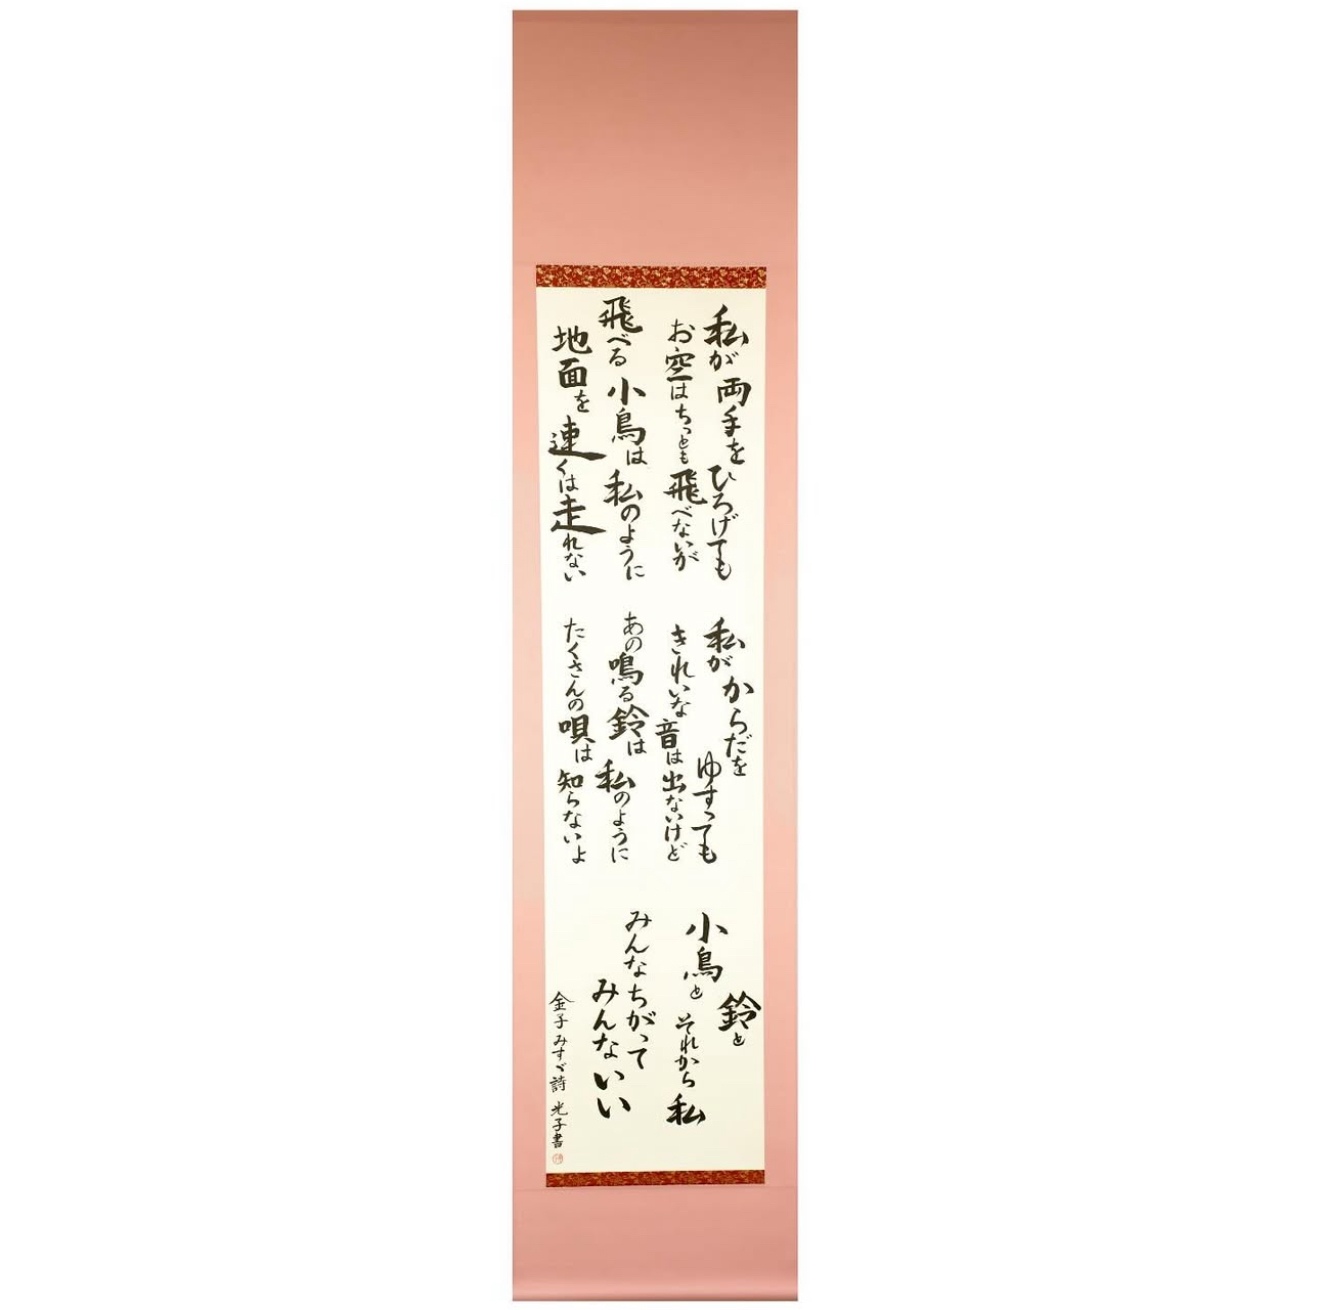 私が両手をひろげても
お空はちっとも飛べないが
飛べる小鳥は私のように
地面を速くは走れない
私がからだをゆすっても
きれいな音は出ないけど
あの鳴る鈴は私のように
たくさんの唄は知らないよ
鈴と
小鳥と それから私
みんなちがって
みんないい
金子みすゞ詩 光子書